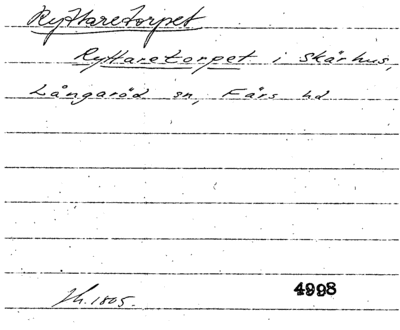 Ryttaretorpet
Ryttaretorpet i Skårhus,
Långaröd sn, Färs hd
Jh. 1805.
4998